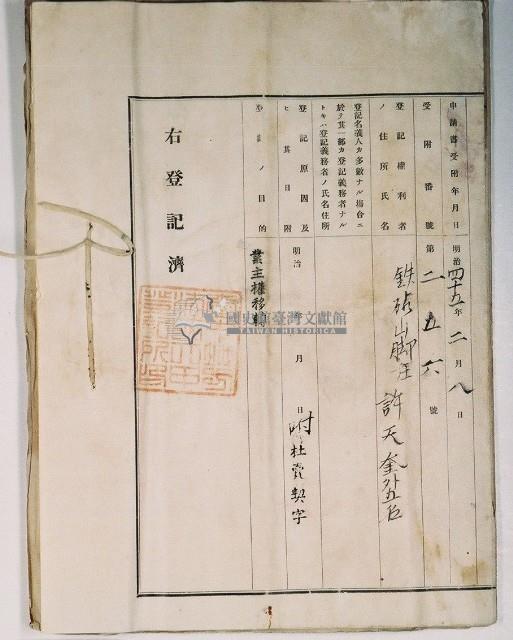 申請書受附年月日 明治四十五年二月八日
受附番號 第二五六號
登記權利者ノ住所氏名 鉄砧山脚庄 許天奎外五名
登記名義人カ多數ナル場合ニ
於テ其一部カ登記義務者ナル
トキハ登記義務者ノ氏名住所
登記原因及
ヒ其日附 明治 年 月 日附杜賣契字
登記ノ目的 業主權移轉
右登記濟
國史館臺灣文獻館
TAIWAN HISTORICA